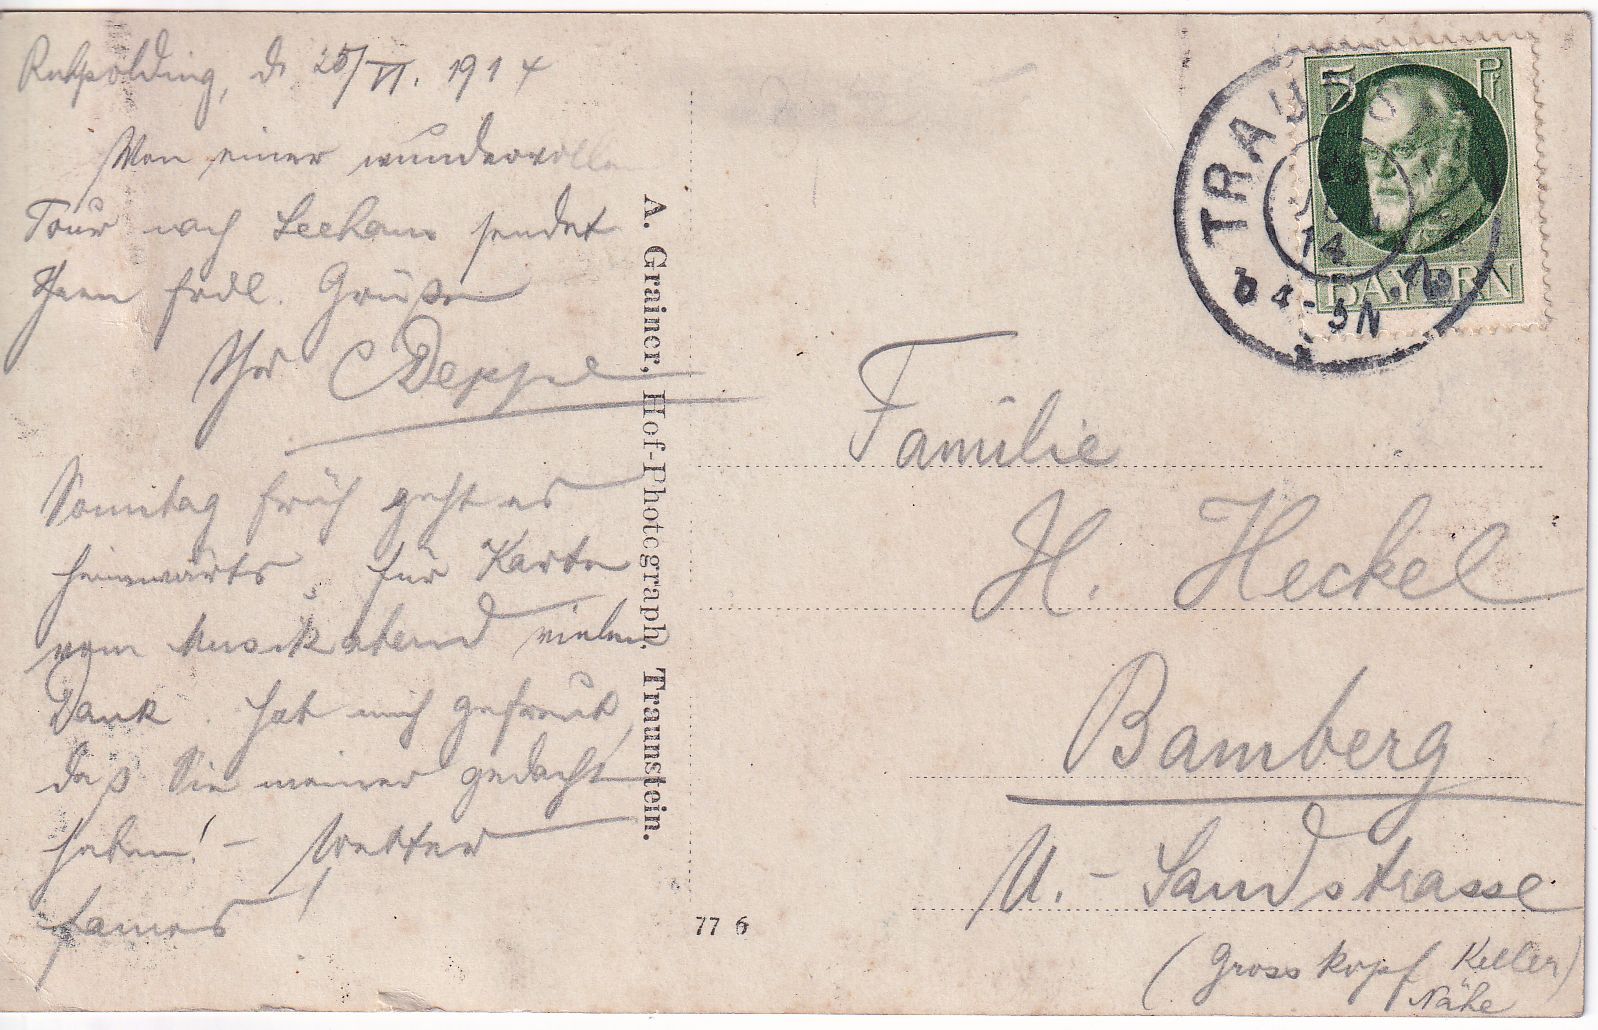 Ruhpolding, d. 25/VI. 1914
Von einer wundervollen
Tour nach Seehaus sendet
Ihnen frdl. Grüße
Ihr C Deppe
Sonntag früh geht es
heimwärts. für Karte
vom Musikabend vielen
Dank. hat mich gefreut,
daß Sie meiner gedacht
haben! – Wetter
famos!
A. Grainer, Hof-Photograph, Traunstein.
77 6
5 Pf
BAYERN
TRAUNSTEIN
JUN
14
4-5N
Familie
H. Heckel
Bamberg
U. - Sandstrasse
(Grosskopf Keller)
Nähe